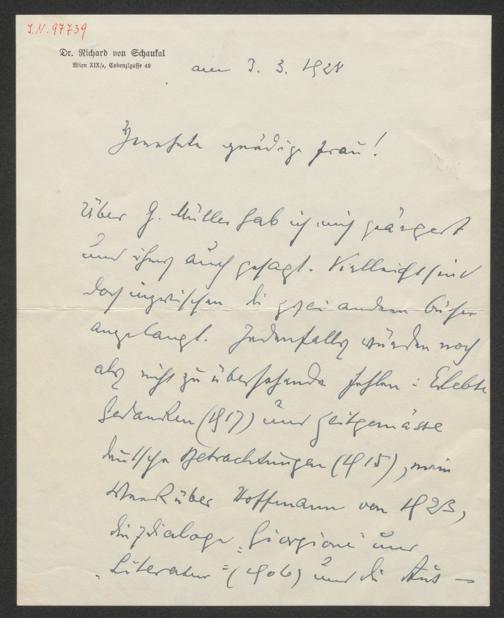 I.N. 97739
Dr. Richard von Schaukal
Wien XIX/1, Cobenzlgasse 42
am 3. 3. 1928
Verehrte gnädige Frau!
Über G. Müller hab ich mich geärgert
und ihms auch gesagt. Vielleicht sind
doch inzwischen die zwei andern Bücher
angelangt. Jedenfalls würden noch
als nicht zu übersehende fehlen: Erlebte
Gedanken (1917) und Zeitgemässe
deutsche Betrachtungen (1915), mein
Werk über Hoffmann von 1923,
die Dialoge „Giorgione" und
„Literatur" (1906) und die Aus-